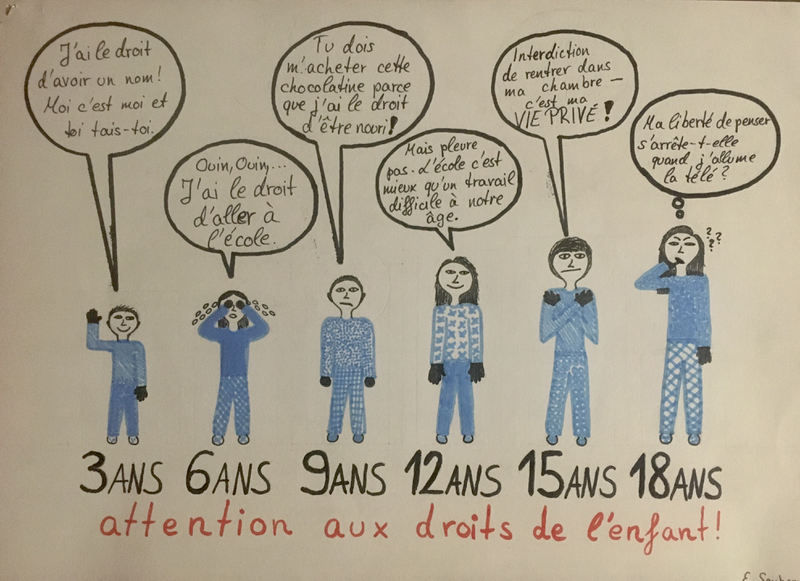 J'ai le droit
d'avoir un nom!
Moi c'est moi et
toi tais-toi.
Ouin, Ouin,...
J'ai le droit
d'aller à
l'école.
Tu dois
m'acheter cette
chocolatine parce
que j'ai le droit
d'être nouri!
Mais pleure
pas. L'école c'est
mieux qu'un travail
difficile à notre
âge.
Interdiction
de rentrer dans
ma chambre –
c'est ma
VIE PRIVÉ!
Ma liberté de penser
s'arrête-t-elle
quand j'allume
la télé?
???
3ANS 6ANS 9ANS 12ANS 15ANS 18ANS
attention aux droits de l'enfant!